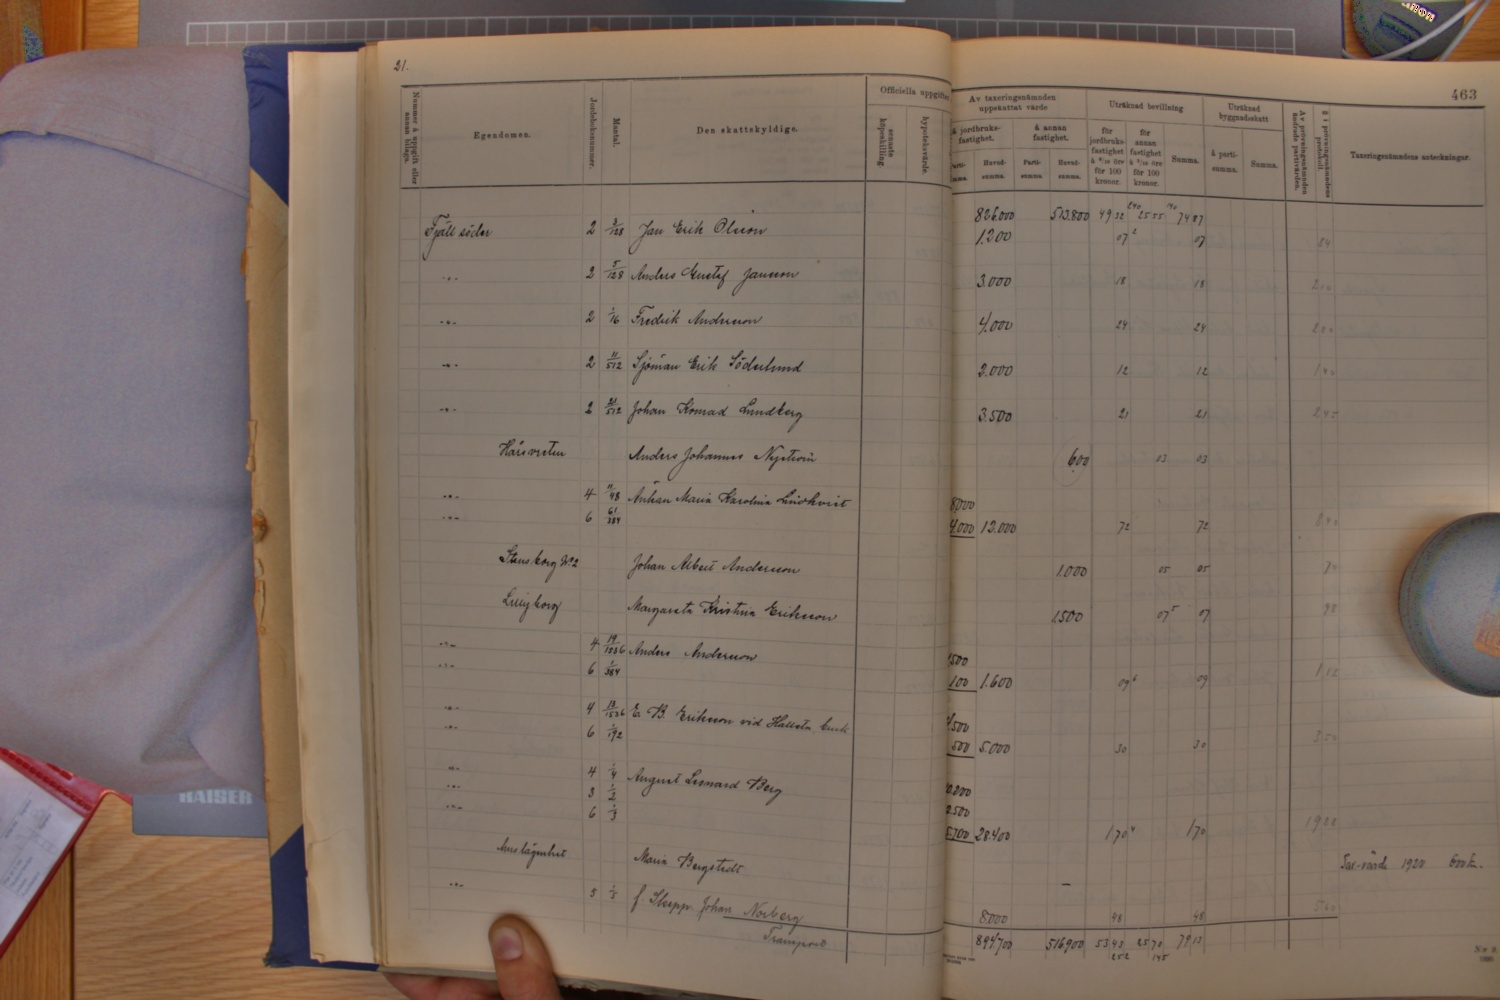 21.
463
Nummer å uppgift eller annan bilaga.
Egendomen.
Jordeboksnummer.
Mantal.
Den skattskyldige.
Officiella uppgifter
senaste köpeskilling
hypoteksvärde.
Av taxeringsnämnden uppskattat värde
Å jordbruksfastighet.
Å annan fastighet.
Partisumma.
Huvudsumma.
Partisumma.
Huvudsumma.
Uträknad bevillning
för jordbruksfastighet à 6/10 öre för 100 kronor.
för annan fastighet à 5/10 öre för 100 kronor.
Summa.
Uträknad byggnadsskatt
à partisumma.
Summa.
Av prövningsnämnden ändrade partivärden.
Taxeringsnämndens anteckningar.
826.000 513.800 49 52 240 25 55 140 74 87
Fjäll söder 2 3/128 Jan Erik Olsson 1.200 07 2 07
" 2 5/128 Anders Gustaf Jansson 3.000 18 18
" 2 1/16 Fredrik Andersson 4.000 24 24
" 2 11/512 Sjöman Erik Söderlund 2.000 12 12
" 2 21/512 Johan Konrad Lundberg 3.500 21 21
Anders Johannes Nyström 600 03 03
" 4 11/48 Änkan Maria Karolina Lindkvist 8.000
" 6 61/384 4.000 12.000 72 72
Stensborg No 2 Johan Albert Andersson 1.000 05 05
Lillyborg Margareta Kristina Eriksson 1.500 07 5 07
" 4 19/1536 Anders Andersson 1.500
" 6 1/384 100 1.600 09 6 09
" 4 13/1536 E. B. Eriksson vid Hallsta bruk 4.500
" 6 1/192 500 5.000 30 30
" 4 1/4 August Leonard Berg
" 3 1/2 2.500
" 6 1/3 5.700 28.400 1.70 4 1.70
Maria Bergstedt – Tax-värde 1920 600 k.
" 5 1/5 f. Skepp. Johan Norberg 8.000 48 48
Transport 894.700 516.900 53 43 25 70 79 13
252 145
KAISER